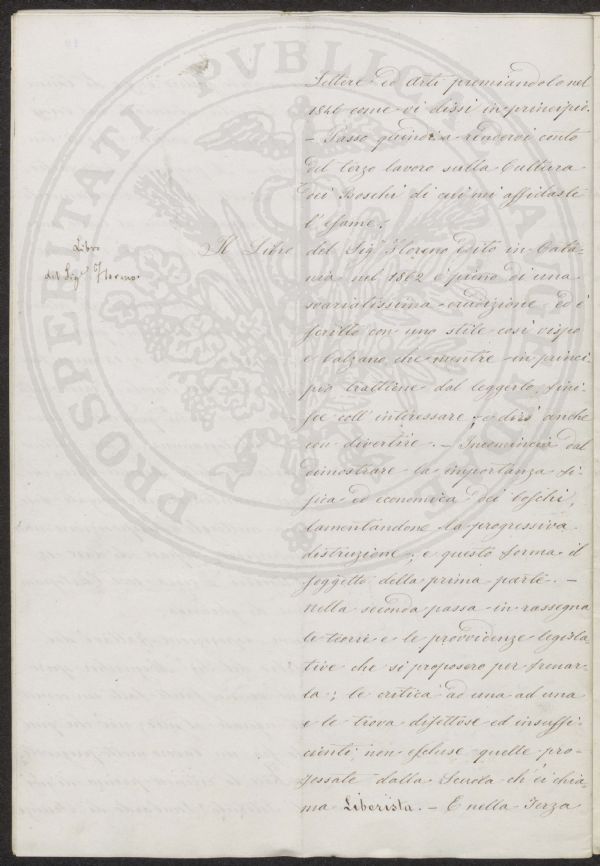 Lettere ed Arti premiandolo nel
1846 come vi dissi in principio.
– Passo quindi a rendervi conto
del terzo lavoro sulla Cultura
dei Boschi di cui mi affidaste
l'esame.
Libro
del Sig.r
Il Libro del Sig.r edito in Catà-
nia nel 1862 è pieno di una
svariatissima erudizione ed è
scritto con uno stile così vispo
e balzano che mentre in princi-
pio trattiene dal leggerlo, fini-
sce coll'interessare, e dirò anche
con divertire. – Incomincia dal
dimostrare la importanza fi-
sica ed economica dei boschi,
lamentandone la progressiva
distruzione; e questo forma il
soggetto della prima parte. –
Nella seconda passa in rassegna
le teorie e le provvidenze legisla-
tive che si proposero per frenar-
la; le critica ad una ad una
e le trova difettose ed insuffi-
cienti non escluse quelle pro-
fessate dalla Scuola ch'ei chia-
ma Liberista. – E nella Terza
PROSPERITATI PVBLICAE AVGENDAE